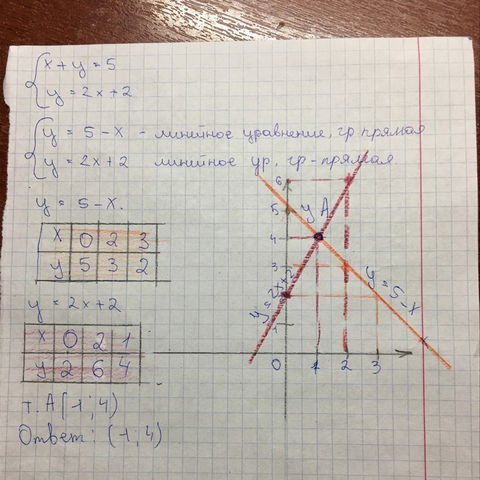 x + y = 5
y = 2x + 2
y = 5 - x - линейное уравнение, гр прямая
y = 2x + 2 линейное ур, гр - прямая
y = 5 - x.
x 0 2 3
y 5 3 2
y = 2x + 2
x 0 2 1
y 2 6 4
т. A (1; 4)
Ответ: (1; 4)
6
5
y A
4
3
y = 2x + 2
y = 5 - x
1
0 1 2 3
x